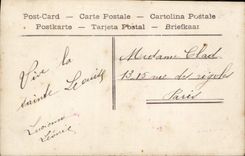 Post-Card — Carte Postale — Cartolina Postale
Postkarte — Tarjeta Postal — Briefkaart
Vive la
sainte Léonie
Lucienne
Léonie
Madame Clad
13.15 rue des
Paris